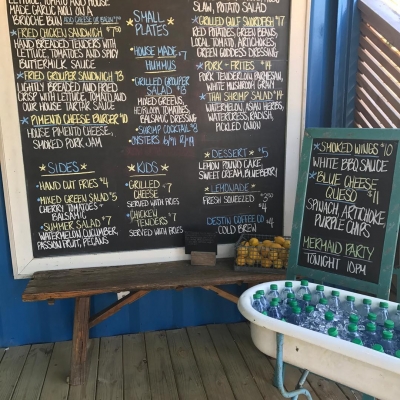 LETTUCE, TOMATO AND HOUSE
MADE GARLIC MAYO ON A
BRIOCHE BUN ADD CHEESE OR BACON $1
FRIED CHICKEN SANDWICH $7.50
HAND BREADED TENDERS WITH
LETTUCE, TOMATOES AND SPICY
BUTTERMILK SAUCE
FRIED GROUPER SANDWICH $13
LIGHTLY BREADED AND FRIED
CRISP WITH LETTUCE, TOMATO AND
OUR HOUSE TARTAR SAUCE
PIMENTO CHEESE BURGER $10
HOUSE PIMENTO CHEESE,
SMOKED PORK JAM
SIDES
HAND CUT FRIES $4
MIXED GREEN SALAD $5
CHERRY TOMATOES +
BALSAMIC
SUMMER SALAD $7
WATERMELON, CUCUMBER,
PASSION FRUIT, PECANS
SMALL
PLATES
HOUSE MADE $7
HUMMUS
GRILLED GROUPER
SALAD $13
MIXED GREENS,
HEIRLOOM TOMATOES,
BALSAMIC DRESSING
SHRIMP COCKTAIL $8
OYSTERS 6/$9 12/$14
KIDS
GRILLED $7
CHEESE
SERVED WITH FRIES
CHICKEN $7
TENDERS
SERVED WITH FRIES
SLAW, POTATO SALAD
GRILLED GULF SWORDFISH $17
RED POTATOES, GREEN BEANS,
LOCAL TOMATO, ARTICHOKES,
GREEN GODDESS DRESSING
PORK-FRITES $14
PORK TENDERLOIN, PARMESAN,
WHITE MUSHROOM GRAVY
THAI SHRIMP SALAD $14
WATERMELON, ASIAN HERBS,
WATERCRESS, RADISH,
PICKLED ONION
DESSERT $5
LEMON POUND CAKE,
SWEET CREAM, BLUEBERRY
LEMONADE
FRESH SQUEEZED $3.50
$4
DESTIN COFFEE CO
COLD BREW $4
SMOKED WINGS $10
WHITE BBQ SAUCE
BLUE CHEESE
QUESO $11
SPINACH, ARTICHOKE,
PURPLE CHIPS
MERMAID PARTY
TONIGHT 10PM